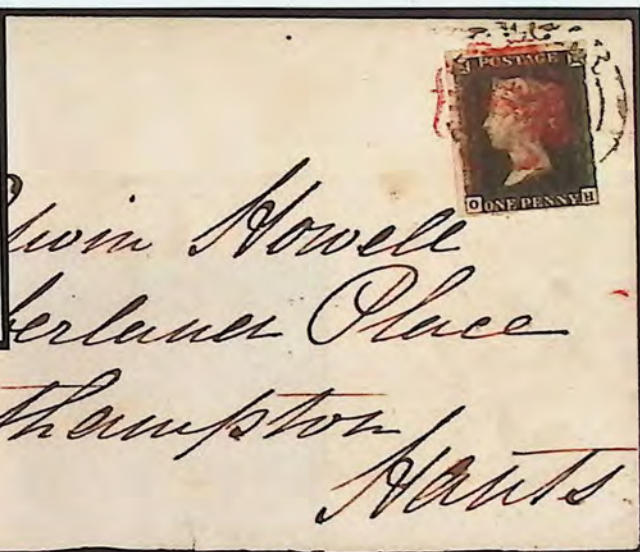 POSTAGE
O ONE PENNY H
Howell
berland Place
thampton
Hants